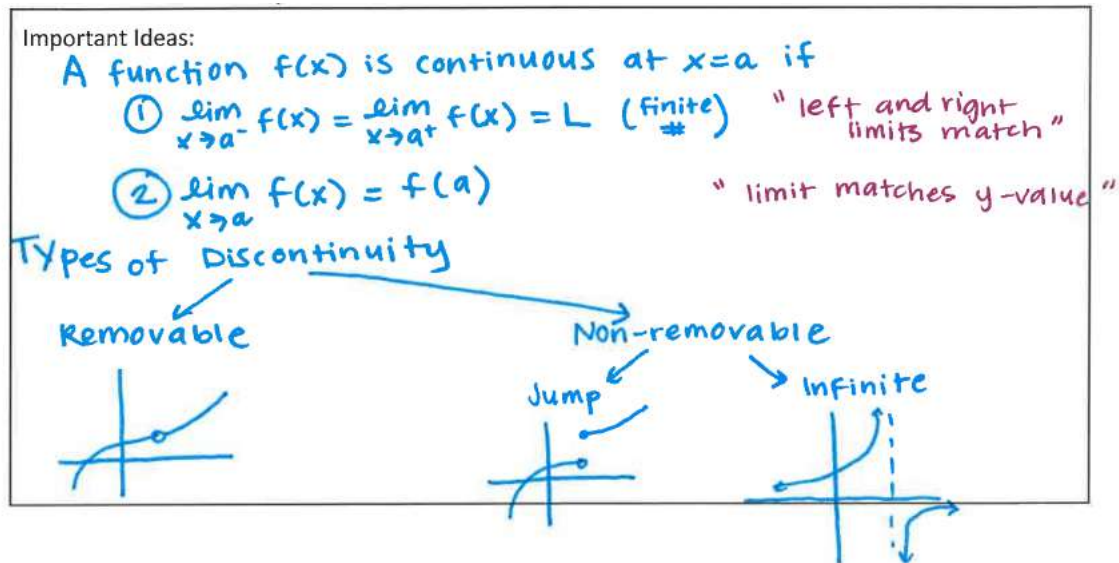 Important Ideas:
A function f(x) is continuous at x=a if
① lim x→a⁻ f(x) = lim x→a⁺ f(x) = L (finite #) "left and right limits match"
② lim x→a f(x) = f(a) "limit matches y-value"
Types of Discontinuity
Removable Non-removable
Jump Infinite